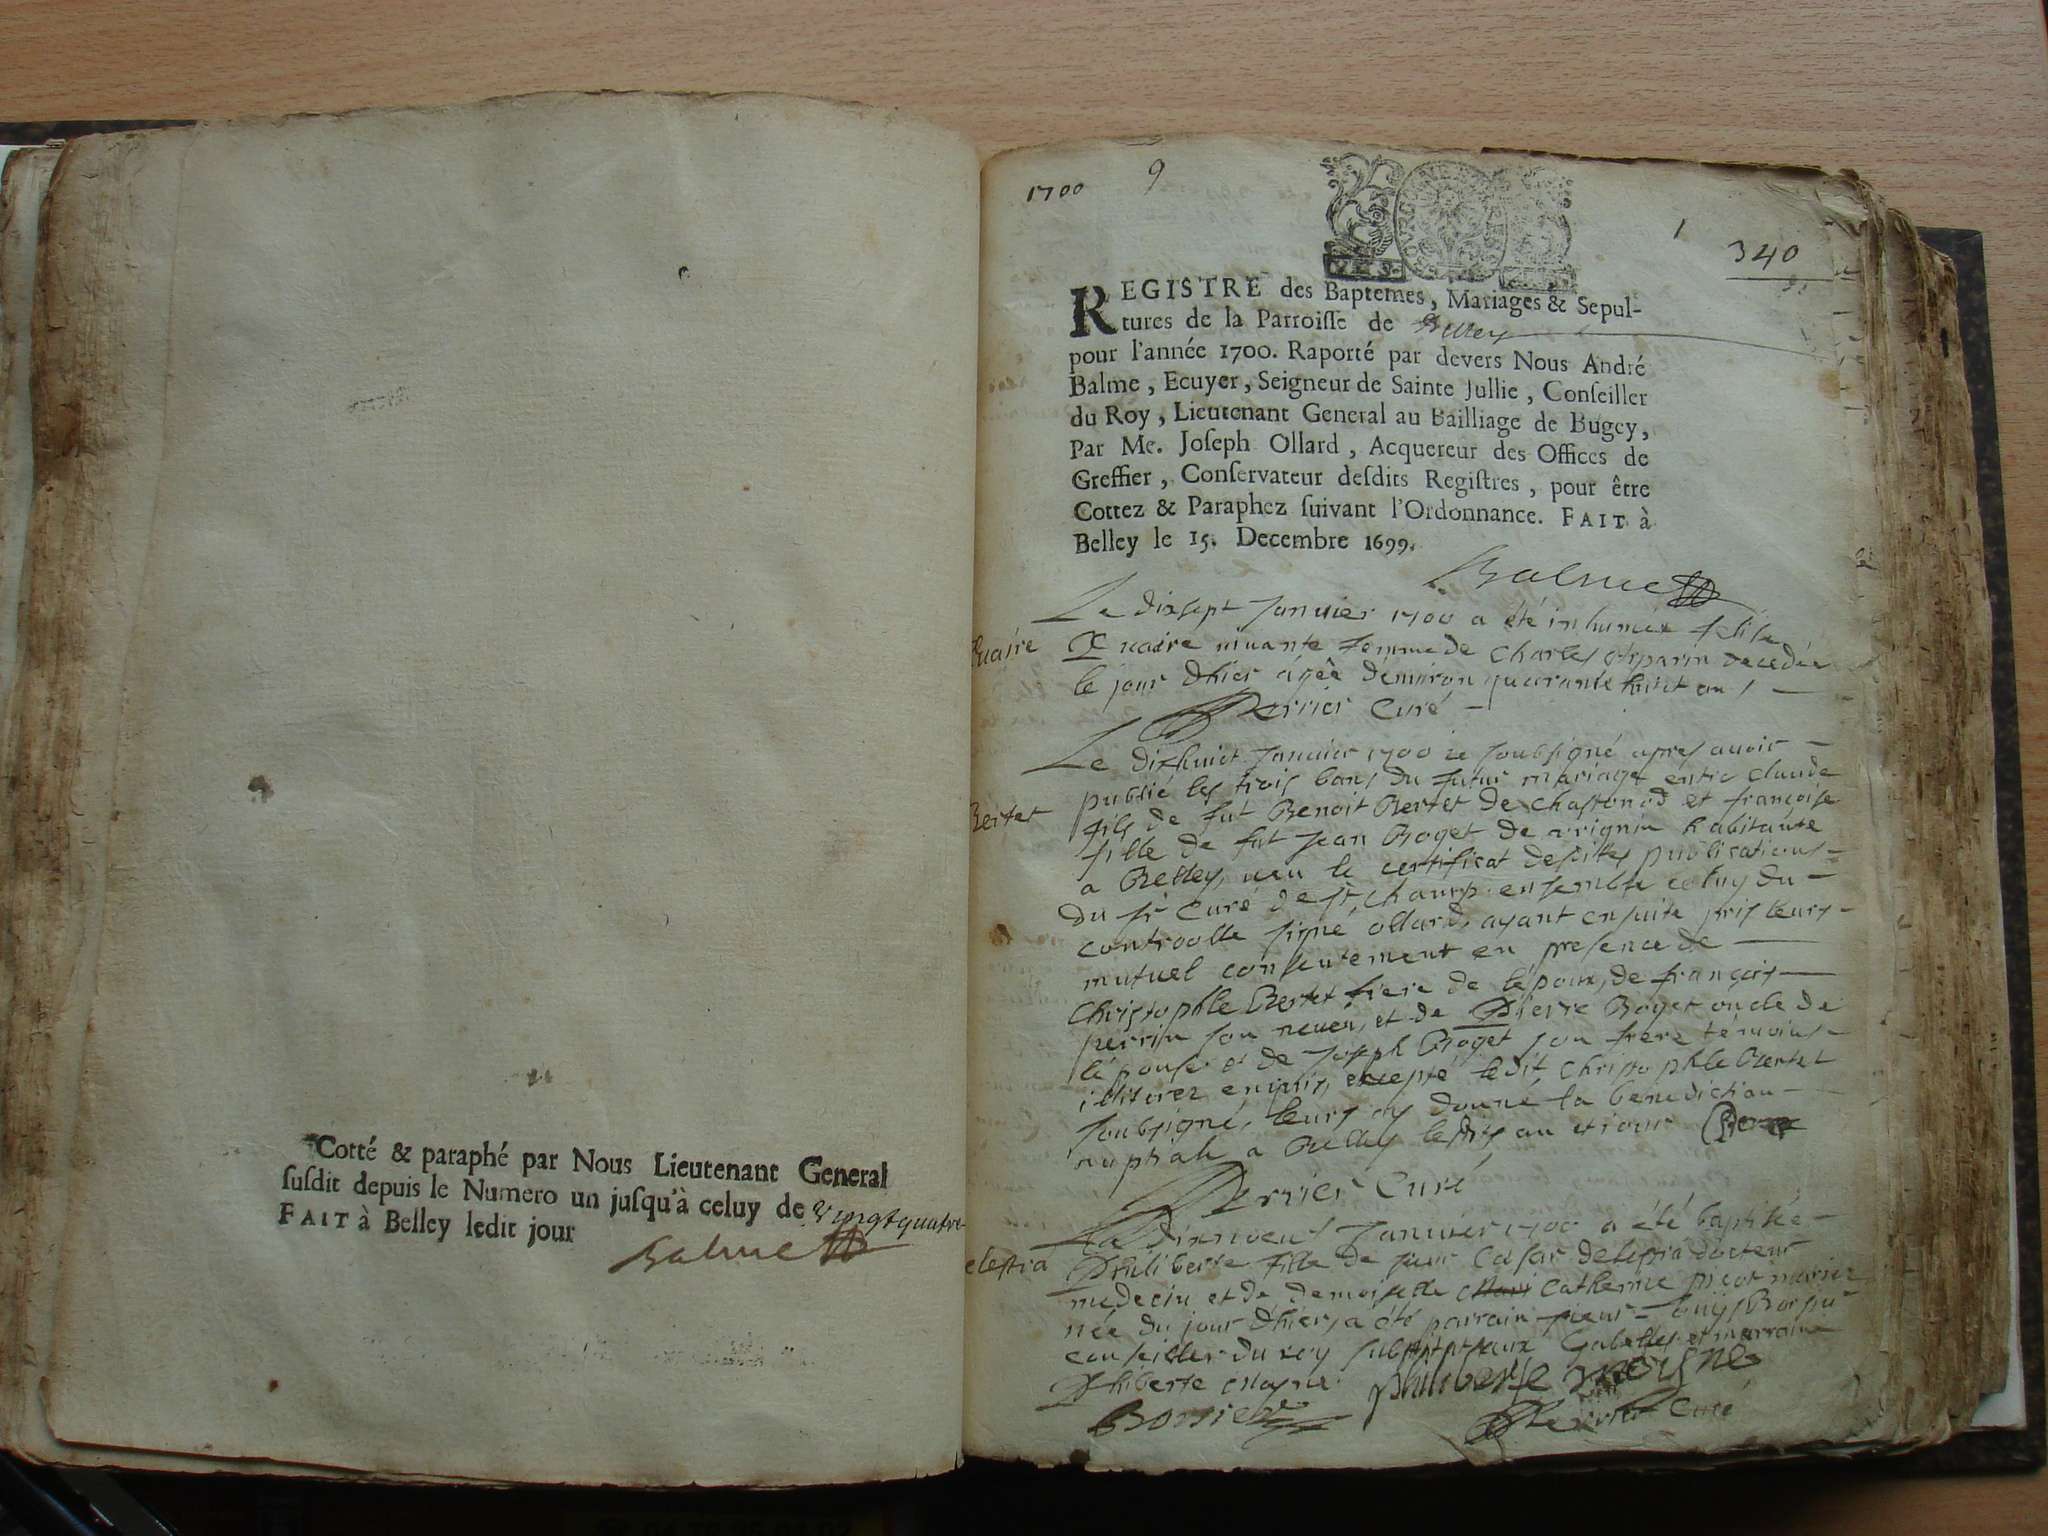 Cotté & paraphé par Nous Lieutenant General
ſuſdit depuis le Numero un juſqu'à celuy de vingt quatre
FAIT à Belley ledit jour
Balme
1700
9
1
340
REGISTRE des Baptemes, Mariages & Sepul-
tures de la Parroiſſe de Belley
pour l'année 1700. Raporté par devers Nous André
Balme, Ecuyer, Seigneur de Sainte Jullie, Conſeiller
du Roy, Lieutenant General au Bailliage de Bugey,
Par Me. Joſeph Ollard, Acquereur des Offices de
Greffier, Conſervateur deſdits Regiſtres, pour être
Cottez & Paraphez ſuivant l'Ordonnance. FAIT à
Belley le 15. Decembre 1699.
Balme
Le dixsept Januier 1700 a été inhumée
femme de Charles decedée
le jour d'hier âgée d'enuiron quarante huict ans
Perrier Curé
Le dixhuict Januier 1700 ie soubsigné apres auoir
Bertet
publié les trois bans du futur mariage entre claude
fils de fut Benoit Bertet de chastonod et françoise
fille de fut Jean Roget de habitante
a Belley, ueu le certificat desdittes publications
du sr Curé de st champ ensemble celuy du
controolle signé ollard, ayant ensuite pris leurs
mutuel consentement en presence de
Christophle Bertet frere de l'époux, de françois
perrin son neueu, et de Pierre Roget oncle de
l'épouse et de Joseph Roget son frere témoins
illiterez enquis, excepté ledit Christophle Bertet
soubsigné, leurs ay donné la benediction
nuptiale a Belley lesdits an et iour
Perrier Curé
Le dixneuf Januier 1700 a été baptisée
Philiberte fille de sieur Cesar delestra docteur
medecin et de demoiselle Catherine
née du jour d'hier, a été parrain sieur
conseiller du roy aux Gabelles et marraine
Philiberte Moyne
philiberte moyne
Perrier Curé